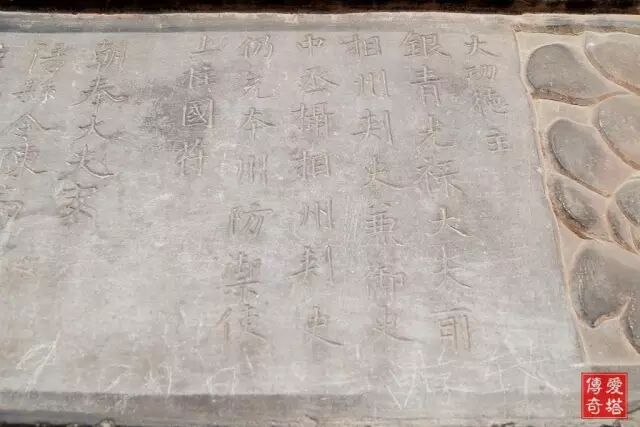 大功德主
銀青光祿大夫前
相州刺史兼御史
中丞攝相州刺史
仍充本州防禦使
上柱國符
朝奉大夫
縣令
愛塔
傳奇